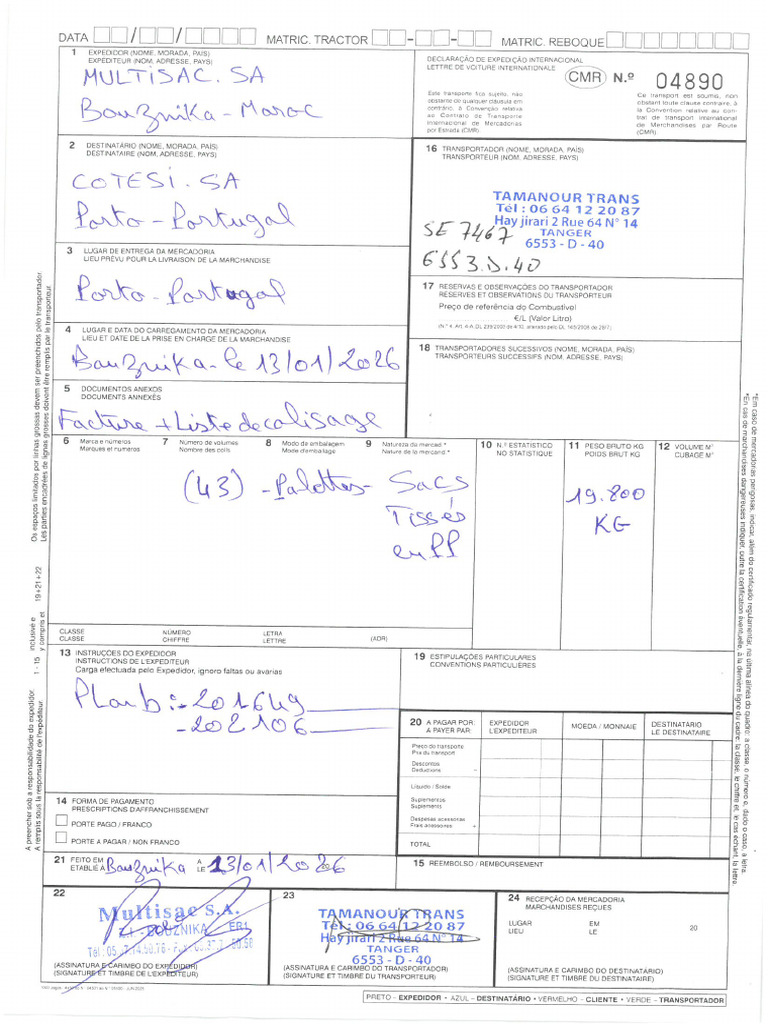 DATA □□/□□/□□□□ MATRIC. TRACTOR □□-□□-□□ MATRIC. REBOQUE □□□□□□□□
1 EXPEDIDOR (NOME, MORADA, PAÍS)
EXPÉDITEUR (NOM, ADRESSE, PAYS)
MULTISAC. SA
Bouznika - Maroc
DECLARAÇÃO DE EXPEDIÇÃO INTERNACIONAL
LETTRE DE VOITURE INTERNATIONALE
CMR N.º 04890
Este transporte fica sujeito, não
obstante de qualquer cláusula em
contrário, à Convenção relativa
ao Contrato de Transporte
Internacional de Mercadorias
por Estrada (CMR)
Ce transport est soumis, non
obstant toute clause contraire, à
la Convention relative au con-
trat de transport international
de Merchandises par Route
(CMR)
2 DESTINATÁRIO (NOME, MORADA, PAÍS)
DESTINATAIRE (NOM, ADRESSE, PAYS)
COTESI. SA
Porto - Portugal
16 TRANSPORTADOR (NOME, MORADA, PAÍS)
TRANSPORTEUR (NOM, ADRESSE, PAYS)
TAMANOUR TRANS
Tél : 06 64 12 20 87
Hay jirari 2 Rue 64 N° 14
TANGER
6553 - D - 40
SE 7467
6553.D.40
3 LUGAR DE ENTREGA DA MERCADORIA
LIEU PRÉVU POUR LA LIVRAISON DE LA MARCHANDISE
Porto - Portugal
17 RESERVAS E OBSERVAÇÕES DO TRANSPORTADOR
RÉSERVES ET OBSERVATIONS DU TRANSPORTEUR
Preço de referência do Combustível
€/L (Valor Litro)
4 LUGAR E DATA DO CARREGAMENTO DA MERCADORIA
LIEU ET DATE DE LA PRISE EN CHARGE DE LA MARCHANDISE
Bouznika - le 13/01/2026
18 TRANSPORTADORES SUCESSIVOS (NOME, MORADA, PAÍS)
TRANSPORTEURS SUCCESSIFS (NOM, ADRESSE, PAYS)
5 DOCUMENTOS ANEXOS
DOCUMENTS ANNEXÉS
Facture + Liste de colisage
6 Marca e números 7 Número de volumes 8 Modo da embalagem 9 Natureza da mercad.* 10 N.º ESTATÍSTICO 11 PESO BRUTO KG 12 VOLUME M³
Marques et numeros Nombre des colis Mode d'emballage Nature de la merchand.* NO STATISTIQUE POIDS BRUT KG CUBAGE M³
(43) - Palettes - Sacs
Tissés
en PP
19.800
KG
CLASSE NÚMERO LETRA
CLASSE CHIFFRE LETTRE (ADR)
13 INSTRUÇÕES DO EXPEDIDOR
INSTRUCTIONS DE L'EXPÉDITEUR
Carga efectuada pelo Expedidor, ignoro faltas ou avarias
Plomb :- 201649
- 202106
19 ESTIPULAÇÕES PARTICULARES
CONVENTIONS PARTICULIÈRES
20 A PAGAR POR: EXPEDIDOR MOEDA / MONNAIE DESTINATÁRIO
A PAYER PAR: L'EXPÉDITEUR LE DESTINATAIRE
Preço do transporte
Prix du transport
Descontos
Deductions -
Líquido / Solde
Suplementos
Suplements
Despesas acessórias
Frais acessoires +
TOTAL
14 FORMA DE PAGAMENTO
PRESCRIPTIONS D'AFFRANCHISSEMENT
□ PORTE PAGO / FRANCO
□ PORTE A PAGAR / NON FRANCO
21 FEITO EM A
ÉTABLIE À Bouznika LE 13/01/2026
15 REEMBOLSO / REMBOURSEMENT
22
Multisac S.A.
BOUZNIKA
(ASSINATURA E CARIMBO DO EXPEDIDOR)
(SIGNATURE ET TIMBRE DE L'EXPÉDITEUR)
23
TAMANOUR TRANS
Tél : 06 64 12 20 87
Hay jirari 2 Rue 64 N° 14
TANGER
6553 - D - 40
(ASSINATURA E CARIMBO DO TRANSPORTADOR)
(SIGNATURE ET TIMBRE DU TRANSPORTEUR)
24 RECEPÇÃO DA MERCADORIA
MARCHANDISES REÇUES
LUGAR EM
LIEU LE 20
(ASSINATURA E CARIMBO DO DESTINATÁRIO)
(SIGNATURE ET TIMBRE DU DESTINATAIRE)
PRETO - EXPEDIDOR • AZUL - DESTINATÁRIO • VERMELHO - CLIENTE • VERDE - TRANSPORTADOR
A preencher sob a responsabilidade do expedidor 1 - 15 inclusivé e 19+21+22 Os espaços limitados por linhas grossas devem ser preenchidos pelo transportador.
A remplis sous la responsabilité de l'expéditeur y compris et Les parties encadrées de lignes grosses doivent être remplis par le transporteur.
*Em caso de mercadorias perigosas, indicar, além do certificado regulamentar, na última alínea do quadro: a classe, o número e, dado o caso, a letra.
*En cas de marchandises dangereuses indiquer, outre la certification éventuelle, à la dernière ligne du cadre, la classe, le chiffre et, le cas échéant, la lettre.